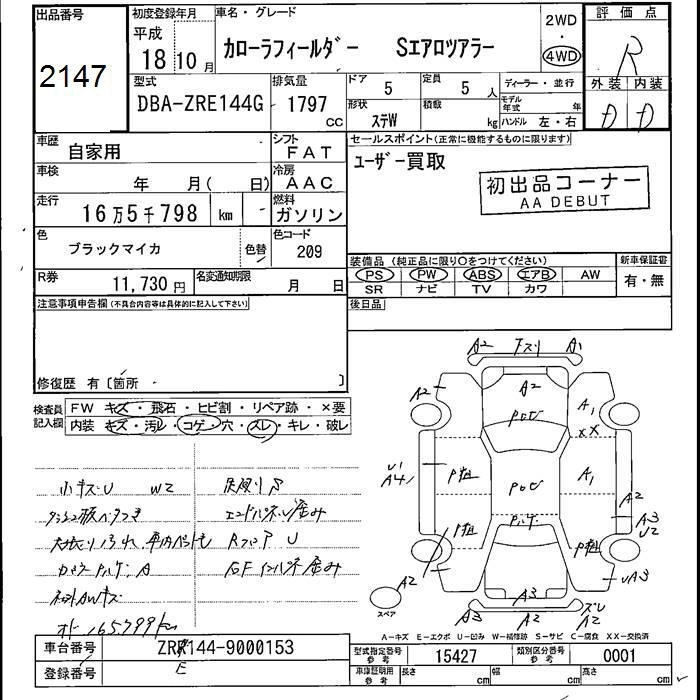 出品番号
2147
初度登録年月
平成
18 10 月
車名・グレード
カローラフィールダー Sエアロツアラー
2WD
・
4WD
評価点
R
外装 内装
D D
型式
DBA-ZRE144G
排気量
1797
CC
ドア
5
定員
5 人
形状
ステW
積載
kg
ディーラー・並行
モデル年式 年
ハンドル 左・右
車歴
自家用
シフト
FAT
車検
年 月( 日)
冷房
AAC
走行
16万5千798 km
燃料
ガソリン
色
ブラックマイカ
色替
色コード
209
R券
11,730 円
名変通知期限
月 日
セールスポイント(正常に機能するものに限ります)
ユーザー買取
初出品コーナー
AA DEBUT
装備品 (純正品に限り○をつけてください)
PS PW ABS エアB AW
SR ナビ TV カワ
新車保証書
有・無
後日品
注意事項申告欄(不具合内容等は具体的に記入して下さい)
修復歴 有〔箇所 〕
検査員記入欄
FW キズ・飛石・ヒビ割・リペア跡・×要
内装 キズ・汚レ・コゲ・穴・スレ・キレ・破レ
小キズU W2
エンドパネル歪み
RフロアU
オドー165799km
A2 A1
A2 A2
A1
XX
U1
A4
P粗
A1
A2
A3
U2
P粗
P粗
UA3
A2
スペア
A3
A3 A2
A−キズ E−エクボ U−凹み W−補修跡 S−サビ C−腐食 XX−交換済
車台番号
ZRR144-9000153
E
登録番号
型式指定番号
参考
15427
類別区分番号
参考
0001
車庫証明用
参考
長さ cm
幅 cm
高さ cm